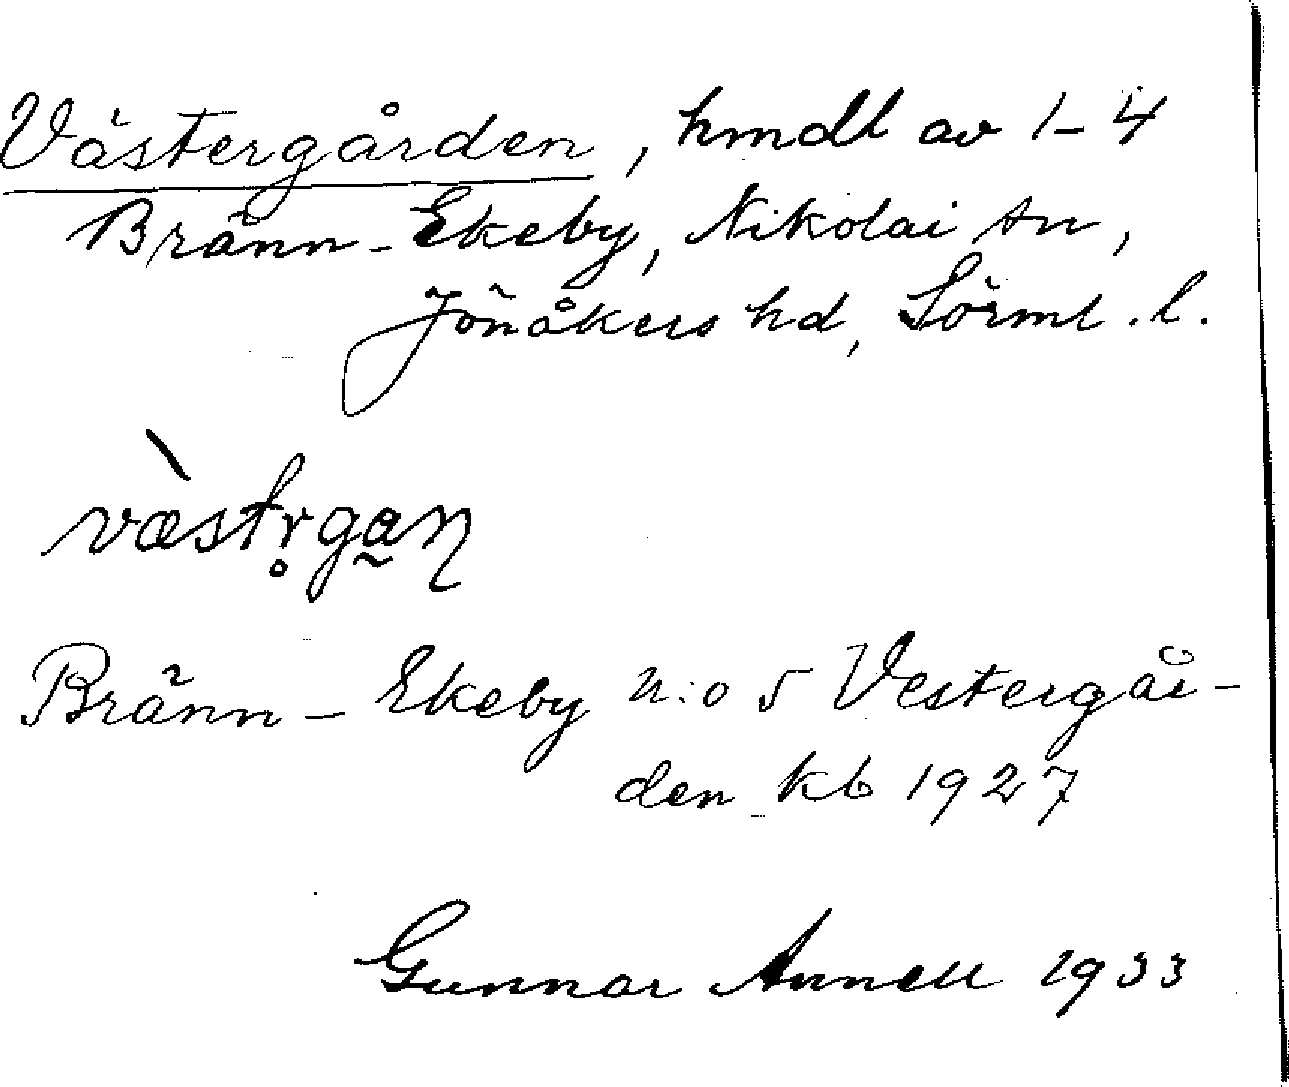 Västergården, hmdl av 1-4
Bränn-Ekeby, Nikolai sn,
Jönåkers hd, Sörml. l.
væ̀str̥ga̰n
Bränn-Ekeby n:o 5 Vestergår-
den kb 1927
Gunnar Annell 1933